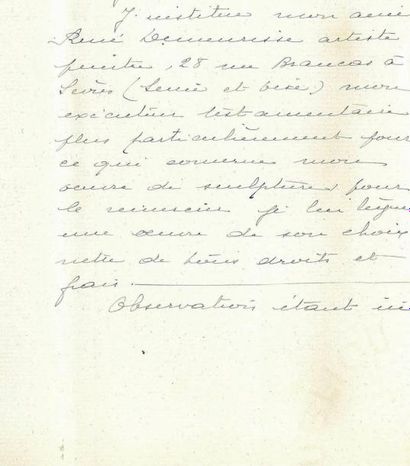 J'institue mon ami
René Demeurisse artiste
peintre, 28 rue Brancas à
Sèvres (Seine et Oise) mon
exécuteur testamentaire
plus particulièrement pour
ce qui concerne mon
œuvre de sculpture, pour
le remercier je lui lègue
une œuvre de son choix
nette de tous droits et
frais.
Observation étant ici